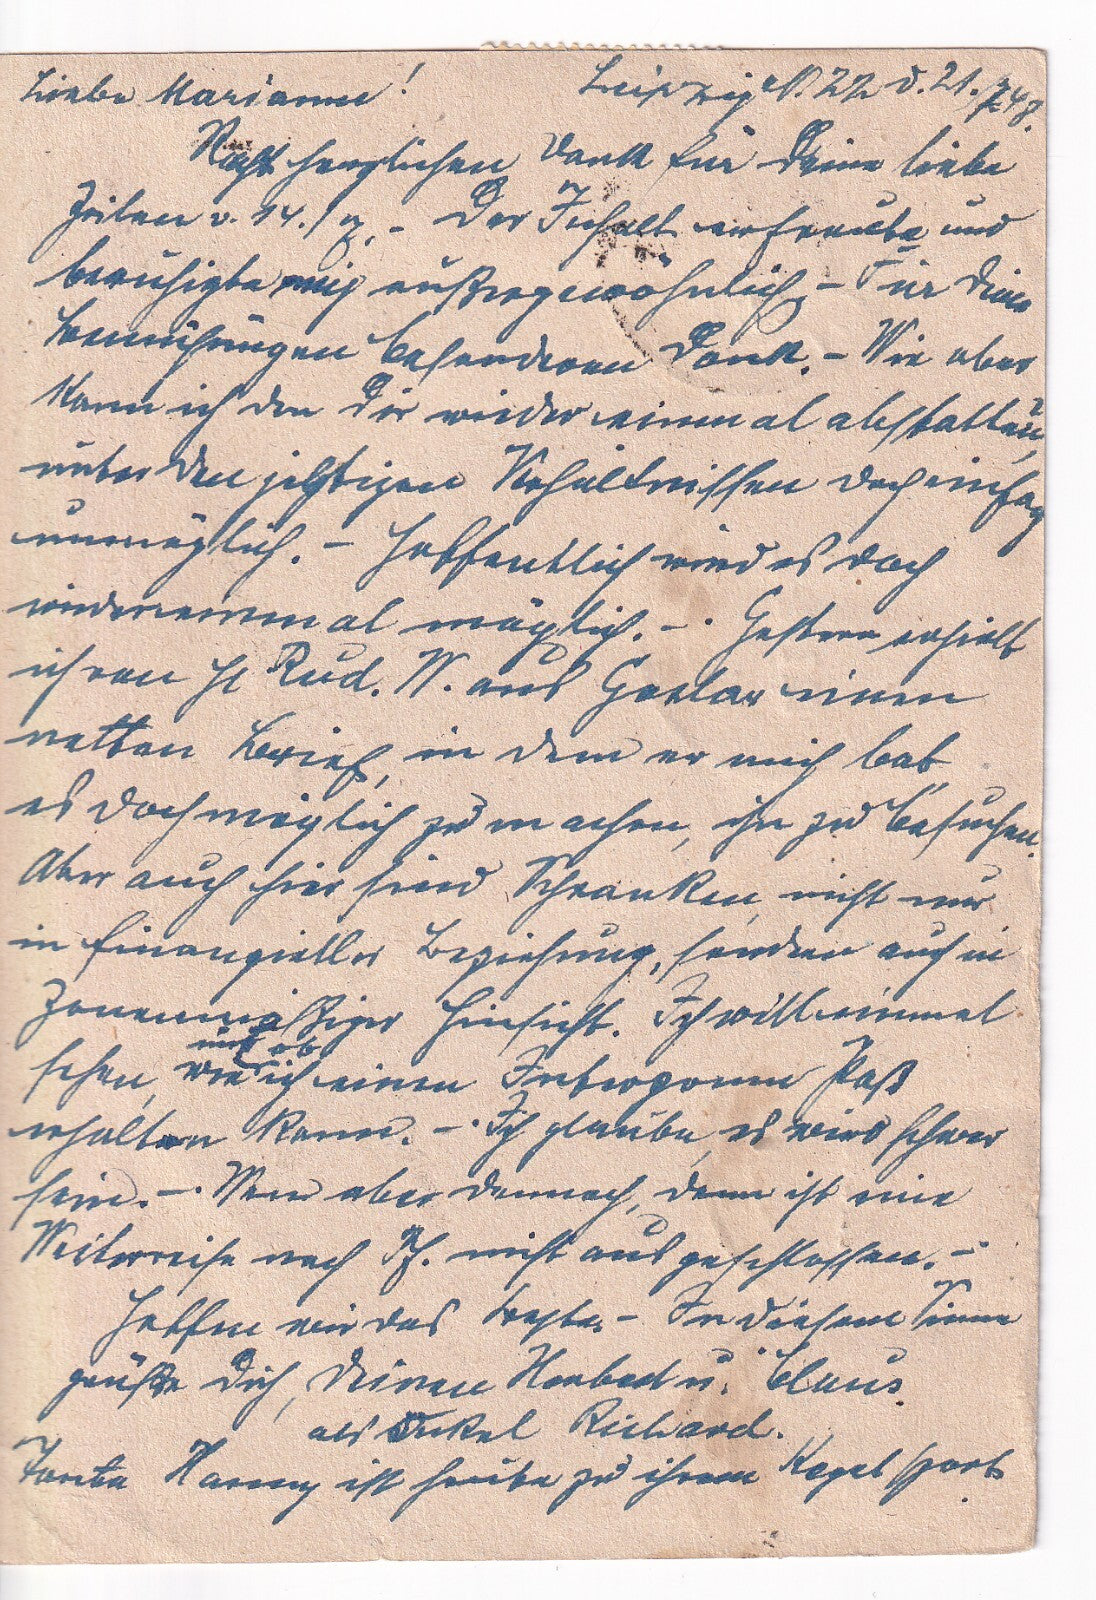 Liebe Marianne! Leipzig N. 22 d. 21./7.48.
Recht herzlichen Dank für Deine liebe
Zeilen v. 14./7. – Der Inhalt erfreute und
beruhigte mich außergewöhnlich – Für Deine
Bemühungen besonderen Dank. – Wie aber
kann ich den Dir wieder einmal abstatten,
unter den jetzigen Verhältnissen doch einfach
unmöglich. – Hoffentlich wird es doch
wiedereinmal möglich. – Gestern erhielt
ich von H Rud. W. aus Goslar einen
netten Brief, in dem er mich bat
es doch möglich zu machen, ihn zu besuchen.
Aber auch hier sind Schranken, nicht nur
in finanzieller Beziehung, sondern auch in
Zonenmäßiger Hinsicht. Ich will einmal
sehen, wie und ob ich einen Interzonen Paß
erhalten kann. – Ich glaube, es wird schwer
sein. – Wenn aber dennoch, dann ist eine
Weiterreise nach nicht ausgeschlossen. –
Hoffen wir das Beste. – In diesem Sinne
grüßt Dich, Deinen u. Claus
als Onkel Richard.
Tante Hanny ist heute zu ihrem Kegelsport